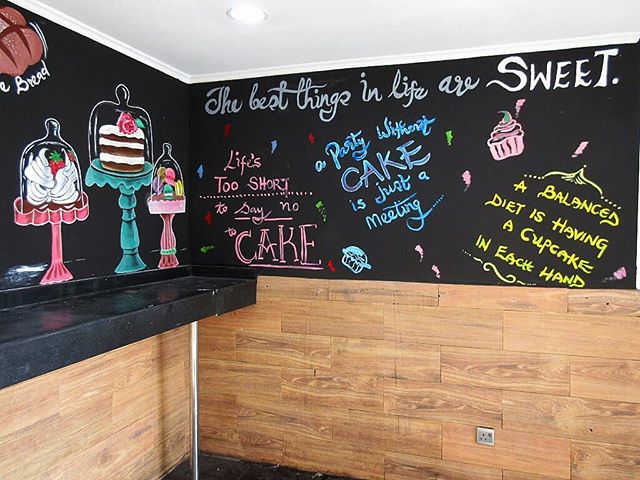 e Bread
The best things in life are SWEET.
Life's
Too Short
to say no
to CAKE
a Party Without
CAKE
is Just a
Meeting
A BALANCED
DIET IS HAVING
A CUPCAKE
IN EACH HAND